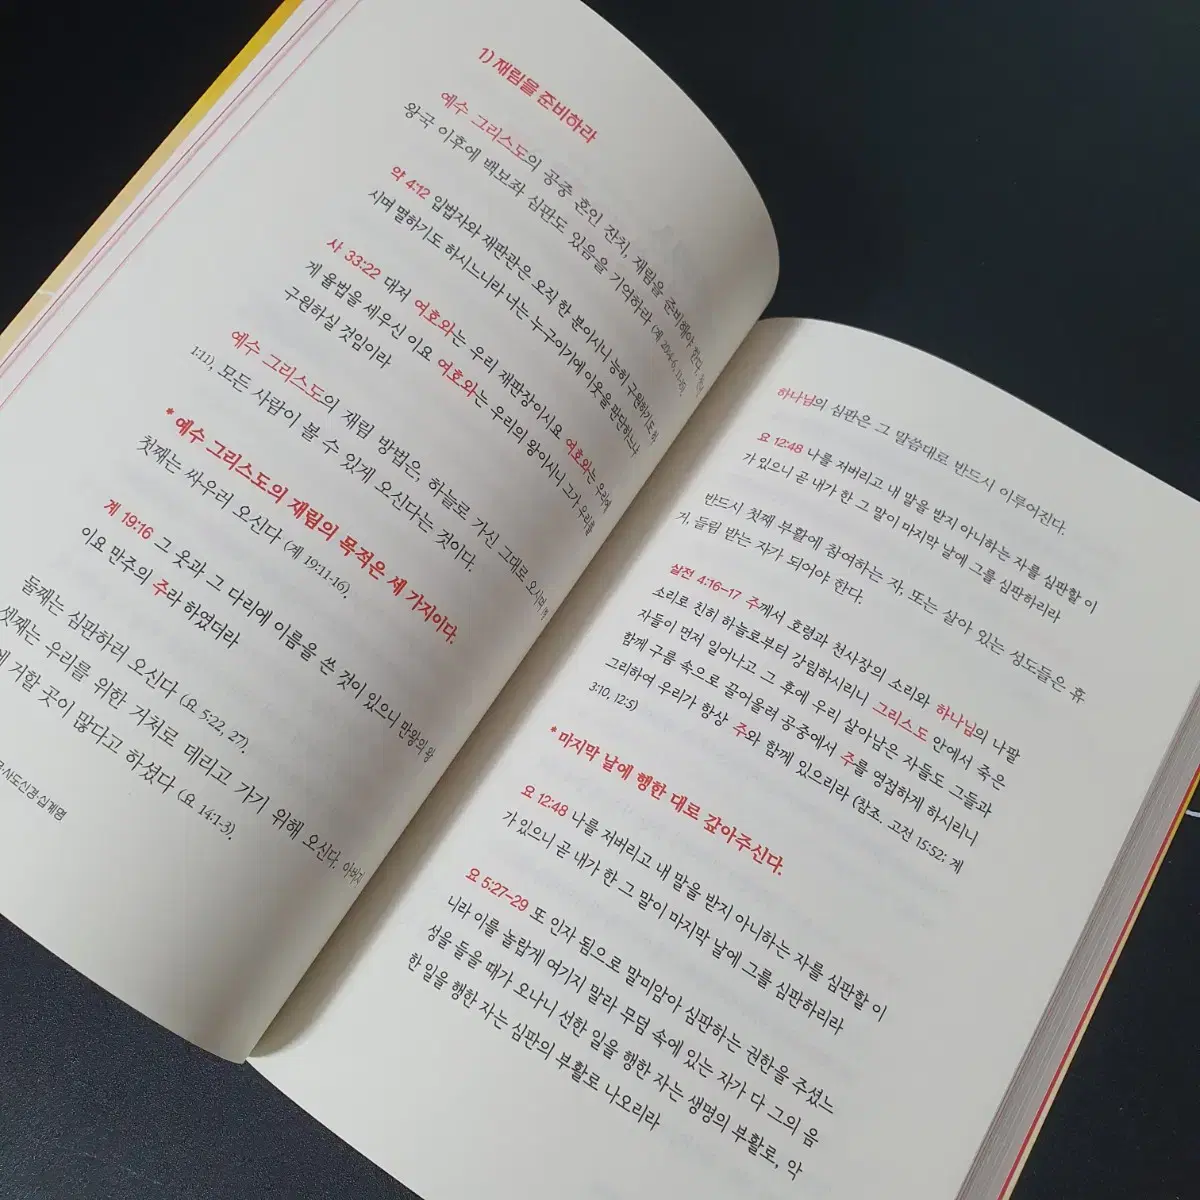 1) 재림을 준비하라
예수 그리스도의 공중 혼인 잔치, 재림을 준비해야 한다.
왕국 이후에 백보좌 심판도 있음을 기억하라 (계 20:4-6, 11-15).
약 4:12 입법자와 재판관은 오직 한 분이시니 능히 구원하기도 하
시며 멸하기도 하시느니라 너는 누구이기에 이웃을 판단하느냐
사 33:22 대저 여호와는 우리 재판장이시요 여호와는 우리에
게 율법을 세우신 이요 여호와는 우리의 왕이시니 그가 우리를
구원하실 것임이라
예수 그리스도의 재림 방법은, 하늘로 가신 그대로 오시며 (행
1:11), 모든 사람이 볼 수 있게 오신다는 것이다.
* 예수 그리스도의 재림의 목적은 세 가지이다.
첫째는 싸우러 오신다 (계 19:11-16).
계 19:16 그 옷과 그 다리에 이름을 쓴 것이 있으니 만왕의 왕
이요 만주의 주라 하였더라
둘째는 심판하러 오신다 (요 5:22, 27).
셋째는 우리를 위한 거처로 데리고 가기 위해 오신다. 아버지
에 거할 곳이 많다고 하셨다 (요 14:1-3).
사도신경·십계명
하나님의 심판은 그 말씀대로 반드시 이루어진다.
요 12:48 나를 저버리고 내 말을 받지 아니하는 자를 심판할 이
가 있으니 곧 내가 한 그 말이 마지막 날에 그를 심판하리라
반드시 첫째 부활에 참여하는 자, 또는 살아 있는 성도들은 휴
거, 들림 받는 자가 되어야 한다.
살전 4:16-17 주께서 호령과 천사장의 소리와 하나님의 나팔
소리로 친히 하늘로부터 강림하시리니 그리스도 안에서 죽은
자들이 먼저 일어나고 그 후에 우리 살아남은 자들도 그들과
함께 구름 속으로 끌어올려 공중에서 주를 영접하게 하시리니
그리하여 우리가 항상 주와 함께 있으리라 (참조. 고전 15:52; 계
3:10, 12:5)
* 마지막 날에 행한 대로 갚아주신다.
요 12:48 나를 저버리고 내 말을 받지 아니하는 자를 심판할 이
가 있으니 곧 내가 한 그 말이 마지막 날에 그를 심판하리라
요 5:27-29 또 인자 됨으로 말미암아 심판하는 권한을 주셨느
니라 이를 놀랍게 여기지 말라 무덤 속에 있는 자가 다 그의 음
성을 들을 때가 오나니 선한 일을 행한 자는 생명의 부활로, 악
한 일을 행한 자는 심판의 부활로 나오리라